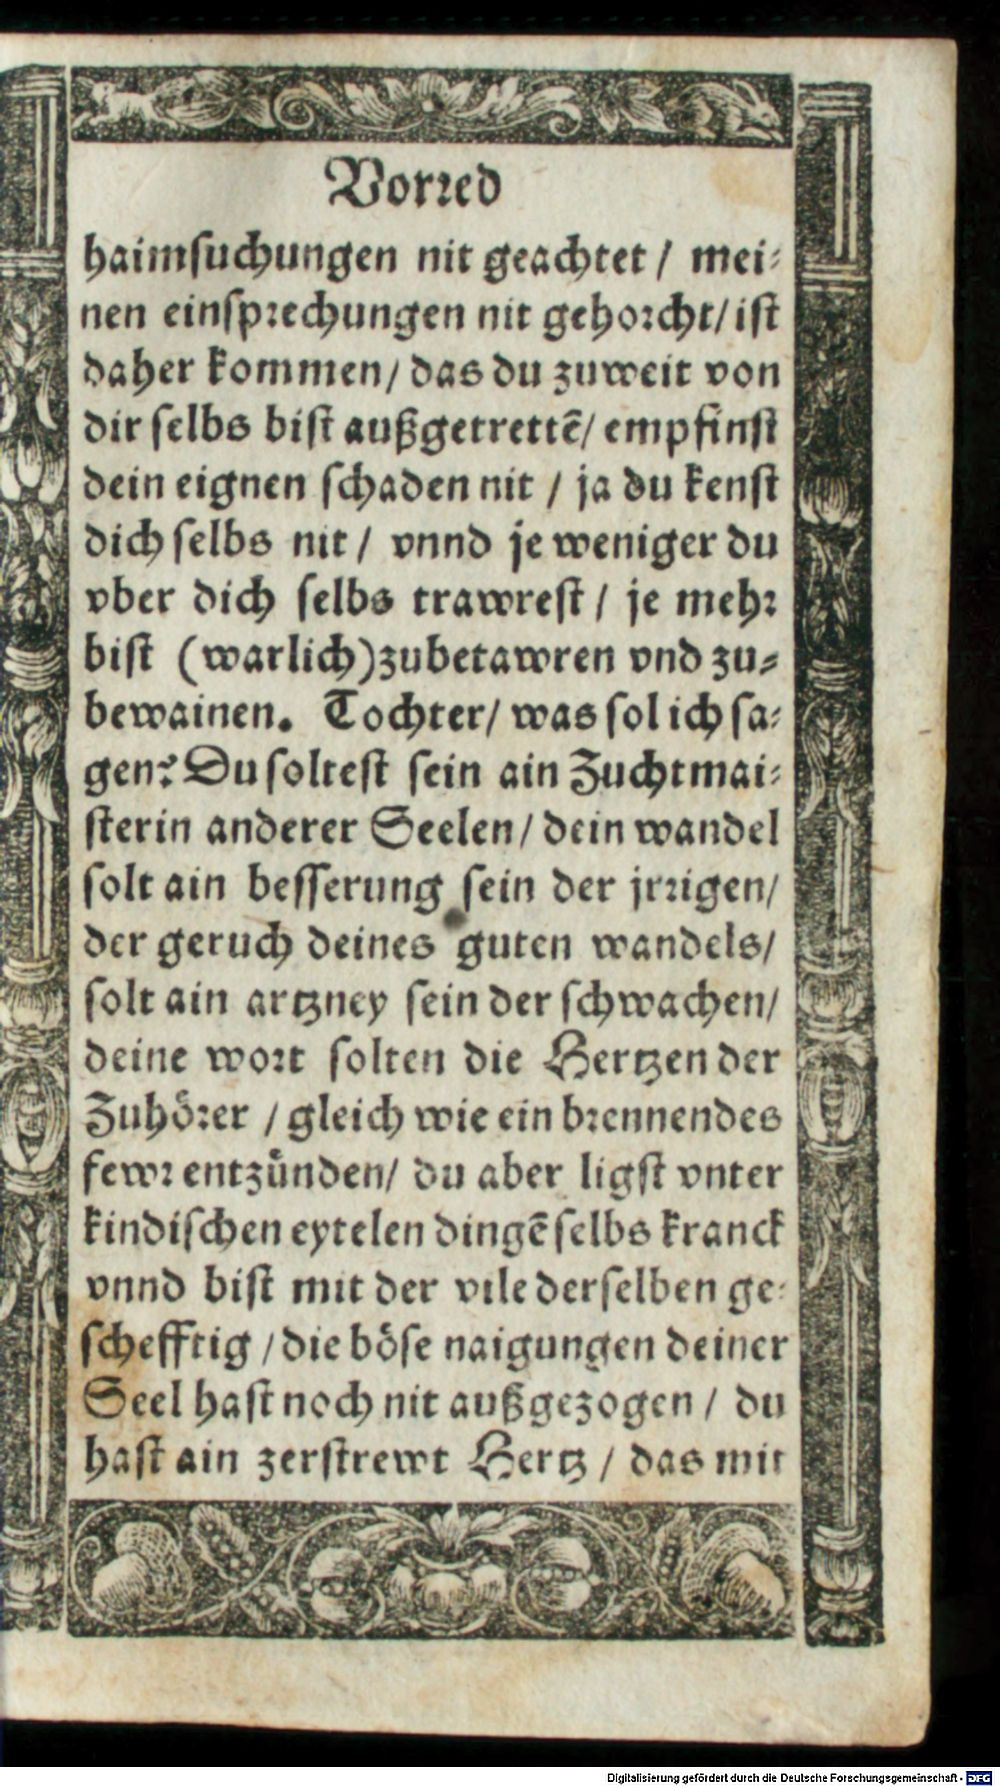 Vorred
haimsuchungen nit geachtet / mei-
nen einsprechungen nit gehorcht/ ist
daher kommen/ das du zuweit von
dir selbs bist außgetrettē/ empfinst
dein eignen schaden nit / ja du kenst
dich selbs nit / vnnd je weniger du
vber dich selbs trawrest / je mehr
bist (warlich) zubetawren vnd zu-
bewainen. Tochter/ was sol ich sa-
gen? Du soltest sein ain Zuchtmai-
sterin anderer Seelen/ dein wandel
solt ain besserung sein der jrrigen/
der geruch deines guten wandels/
solt ain artzney sein der schwachen/
deine wort solten die Hertzen der
Zuhörer / gleich wie ein brennendes
fewr entzünden/ du aber ligst vnter
kindischen eytelen dingē selbs kranck
vnnd bist mit der vile derselben ge-
schefftig / die böse naigungen deiner
Seel hast noch nit außgezogen / du
hast ain zerstrewt Hertz / das mit
Digitalisierung gefördert durch die Deutsche Forschungsgemeinschaft - DFG